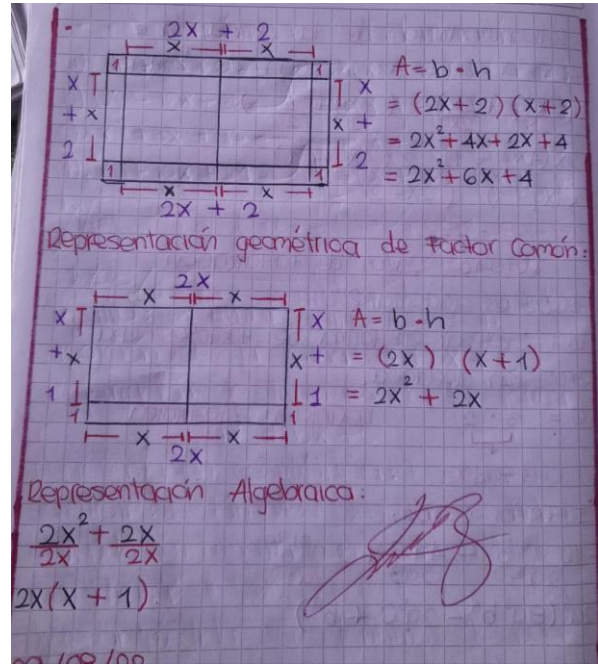 2x + 2
x x
1 1
x x
+ x x +
2 2
1 1
x x
2x + 2
A = b • h
= (2x+2) (x+2)
= 2x²+4x+2x+4
= 2x²+6x+4
Representación geométrica de Factor Común:
2x
x x
x x
+x x+
1 1
1 1
x x
2x
A = b • h
= (2x) (x+1)
= 2x² + 2x
Representación Algebraica:
2x² + 2x
2x 2x
2x(x + 1)